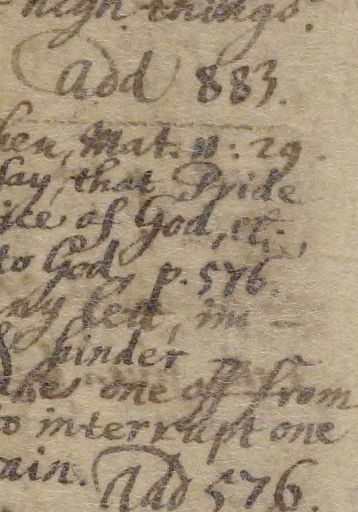 high things.
Add 883.
hen, Mat. 11:29.
say, that Pride
ice of God, etc,
to God, p. 576.
ny
& hinder
one off from
o interrupt one
ain. Add 576.